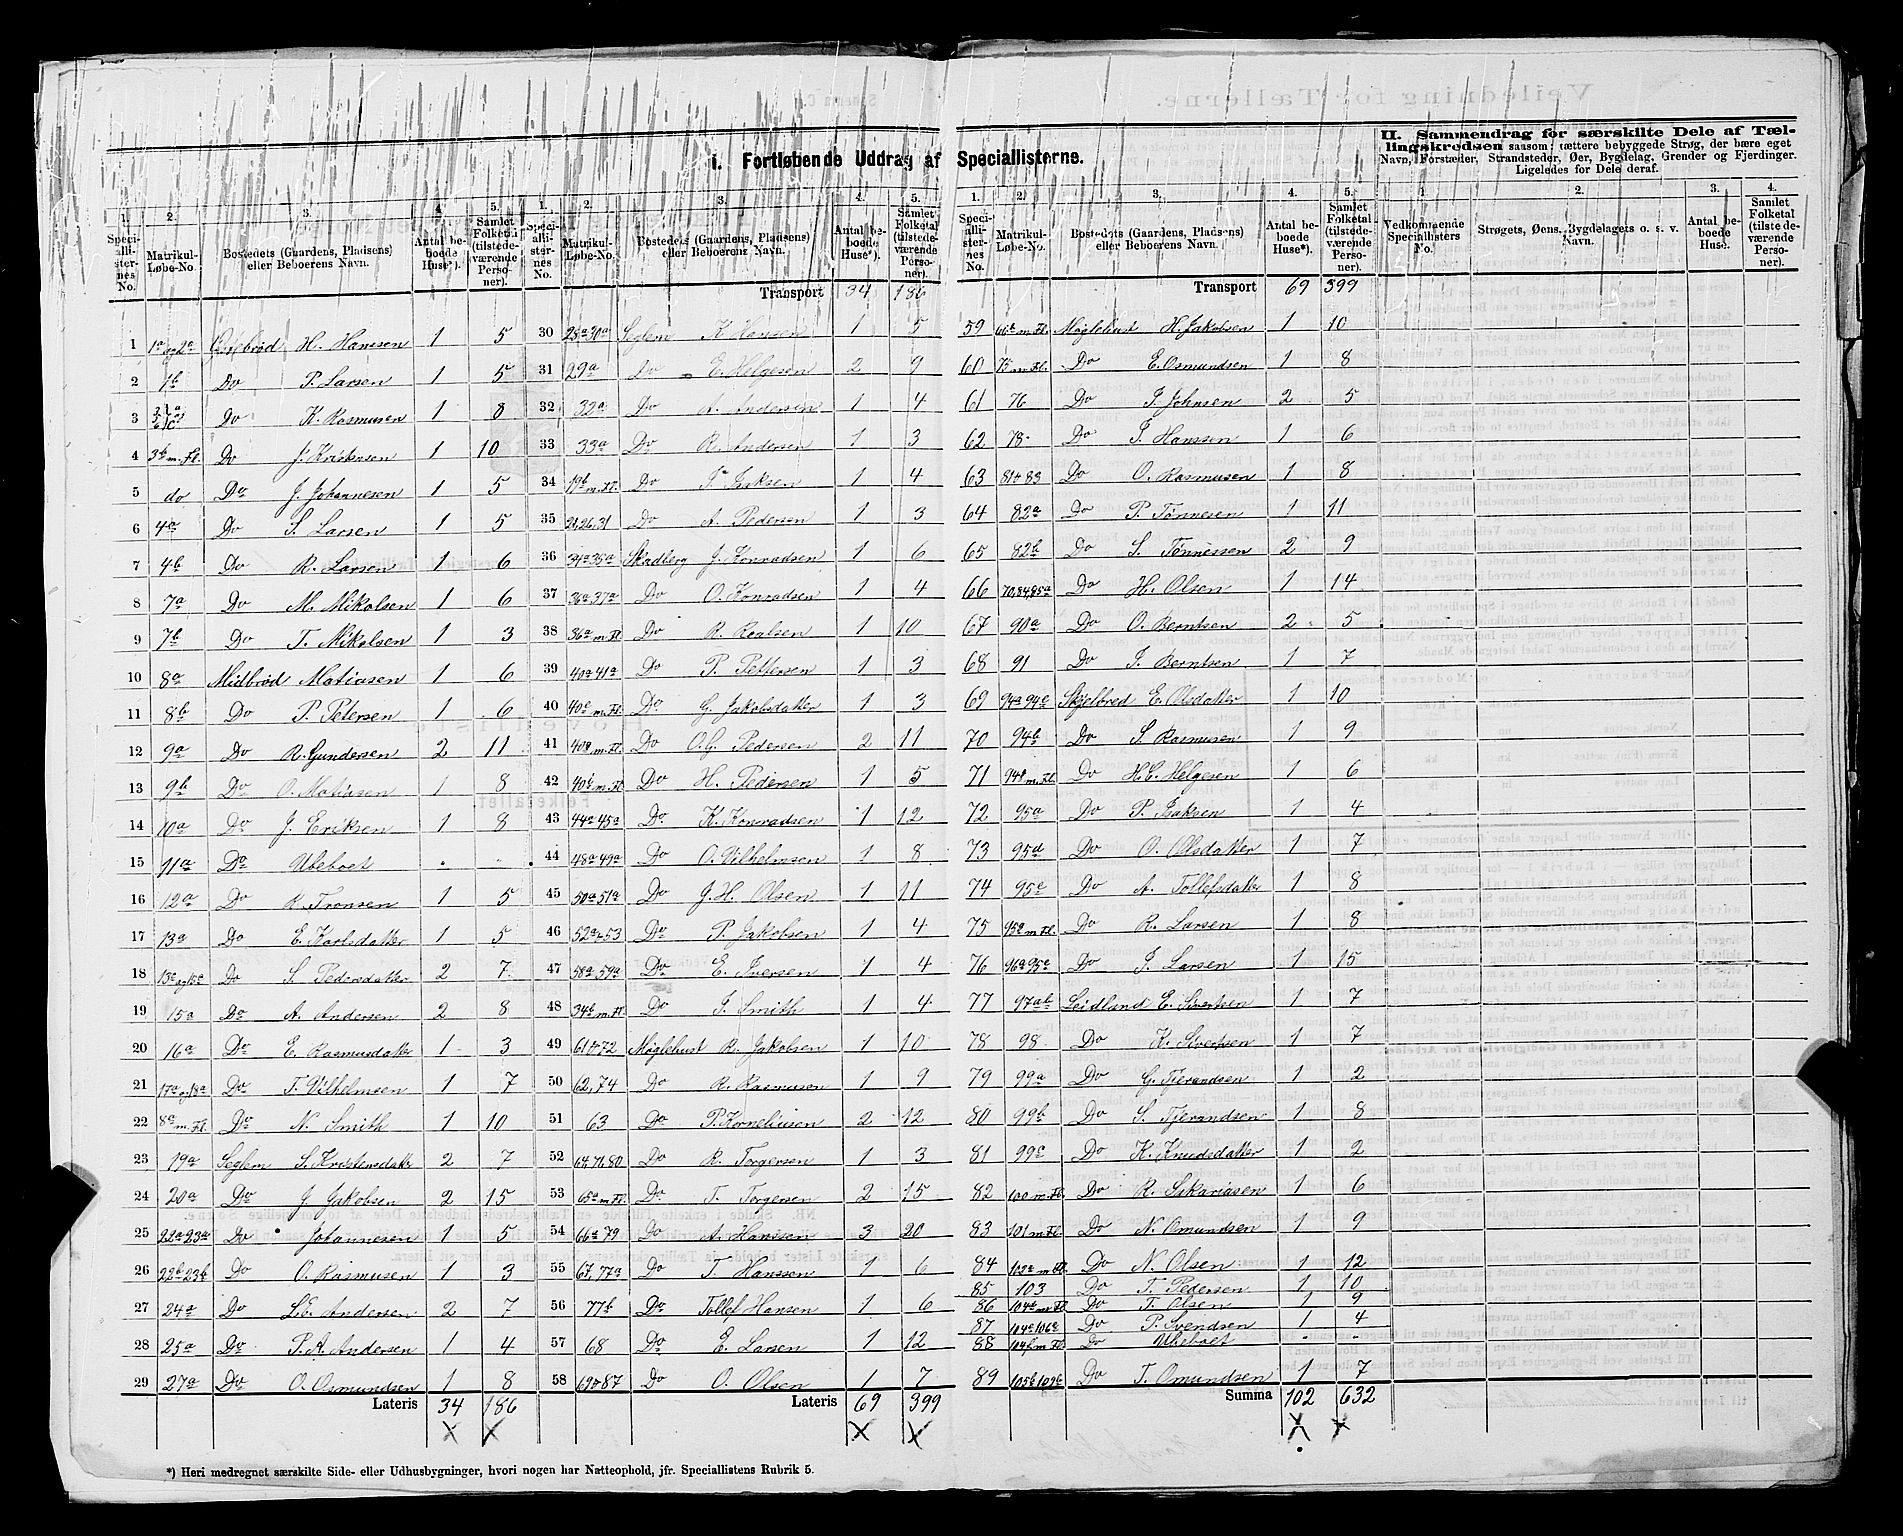 I. Fortløbende Uddrag af Speciallisterne.
II. Sammendrag for særskilte Dele af Tællingskredsen saasom: tættere bebyggede Strøg, der bære eget Navn, Forstæder, Strandsteder, Øer, Bygdelag, Grender og Fjerdinger. Ligeledes for Dele deraf.
1. 2. 3. 4. 5. 1. 2. 3. 4. 5. 1. 2. 3. 4. 5. 1. 2. 3. 4.
Speciallisternes No. Matrikul-Løbe-No. Bostedets (Gaardens, Pladsens) eller Beboerens Navn. Antal beboede Huse*). Samlet Folketal (tilstedeværende Personer).
Speciallisternes No. Matrikul-Løbe-No. Bostedets (Gaardens, Pladsens) eller Beboerens Navn. Antal beboede Huse*). Samlet Folketal (tilstedeværende Personer).
Speciallisternes No. Matrikul-Løbe-No. Bostedets (Gaardens, Pladsens) eller Beboerens Navn. Antal beboede Huse*). Samlet Folketal (tilstedeværende Personer).
Vedkommende Speciallisters No. Strøgets, Øens, Bygdelagets o. s. v. Navn. Antal beboede Huse. Samlet Folketal (tilstedeværende Personer).
1 1a og 2a H. Hanssen 1 5
2 1b Do P. Larsen 1 5
3 Do K. Rasmusen 1 8
4 3b m. Fl. Do J. Kristensen 1 10
5 do Do J. Johannesen 1 5
6 4a Do S. Larsen 1 5
7 4b Do R. Larsen 1 6
8 7a Do M. Mikalsen 1 6
9 7b Do T. Mikalsen 1 3
10 8a Midbrød Matiasen 1 6
11 8b Do P. Petersen 1 6
12 9a Do R. Gundersen 2 11
13 9b Do O. Matiasen 1 8
14 10a Do J. Eriksen 1 8
15 11a Do Ubeboet " "
16 12a Do R. Tronsen 1 5
17 13a Do E. Karlsdatter 1 5
18 13c og 15c Do S. Pedersdatter 2 7
19 15a Do A. Andersen 2 8
20 16a Do E. Rasmusdatter 1 3
21 17a og 18a Do T. Vilhelmsen 1 7
22 8a m. Fl. Do N. Smith 1 10
23 19a Seglem S. Kristensdatter 2 7
24 20a Do J. Jakobsen 2 15
25 22a 23a Do Johannesen 1 5
26 22b 23b Do O. Rasmusen 1 3
27 24a Do L.E. Andersen 2 7
28 25a Do P.A. Andersen 1 4
29 27a Do O. Osmundsen 1 8
Lateris 34 186
Transport 34 186
30 28a 30a Seglem K. Hansen 1 5
31 29a Do E. Helgesen 2 9
32 32a Do A. Andersen 1 4
33 33a Do R. Andersen 1 3
34 19b m. Fl. Do T. Isaksen 1 4
35 21,26,31 Do A. Pedersen 1 3
36 34a 35a Skadberg J. Konradsen 1 6
37 36a 37a Do O. Konradsen 1 4
38 36a m. Fl Do R. Roalsen 1 10
39 40a 41a Do P. Pettersen 1 3
40 40c m. Fl. Do G. Jakobsdatter 1 3
41 40 m. Fl. Do O.G. Pedersen 2 11
42 40b m. Fl Do H. Pedersen 1 5
43 44a 45a Do K. Konradsen 1 12
44 48a 49a Do O. Vilhelmsen 1 8
45 50a 51a Do J.H. Olsen 1 11
46 52a 53 Do P. Jakobsen 1 4
47 58a 59a Do E. Iversen 1 4
48 34b m. Fl. Do T. Smith 1 4
49 61 72 Møglehust R. Jakobsen 1 10
50 62, 74 Do R. Rasmusen 1 9
51 63 Do P. Korneliusen 2 12
52 64, 71, 80 Do R. Torgersen 1 3
53 65a m. Fl. Do T. Torgersen 2 15
54 66a 79 Do A. Hanssen 3 20
55 67, 77a Do T. Hanssen 1 6
56 77b Do Tollef Hansen 1 6
57 68 Do E. Larsen 1 12
58 69 87 Do O. Olsen 1 7
Lateris 69 399
Transport 69 399
59 66b m. Fl. Møglehust H. Jakobsen 1 10
60 m. Fl. Do E. Osmundsen 1 8
61 76 Do J. Johnsen 2 5
62 78 Do J. Hanssen 1 6
63 81 83 Do O. Rasmusen 1 8
64 82a Do P. Tønnesen 1 11
65 82b Do S. Tønnessen 2 9
66 70,84,85a Do H. Olsen 1 14
67 90a Do O. Berntsen 2 5
68 91 Do J. Berntsen 1 7
69 94a 94c Skjelbred E. Olsdatter 1 10
70 94b Do S. Rasmusen 1 9
71 94 m. Fl. Do H.E. Helgesen 1 6
72 95a Do P. Isaksen 1 4
73 95d Do O. Olsdatter 1 7
74 95c Do A. Tollefsdatter 1 8
75 95 m. Fl. Do R. Larsen 1 8
76 96a 95e Do J. Larsen 1 15
77 97ab Leidland E. Sivertsen 1 7
78 98 Do K. Sivertsen 1 7
79 99a Do G. Tjerandsen 1 2
80 99b Do S. Tjerandsen 1 8
81 99c Do K. Knudsdatter 1 2
82 100 m. Fl. Do R. Sakariasen 1 6
83 101 m Fl. Do N. Omundsen 1 9
84 102a m Fl. Do N. Olsen 1 12
85 103 Do T. Pedersen 1 10
86 104a m Fl Do T. Olsen 1 9
87 104c 106c Do P. Svendsen 1 4
88 104 m Fl. Do Ubeboet " "
89 105b 109b Do T. Omundsen 1 7
Summa 102 632
*) Heri medregnet særskilte Side- eller Udhusbygninger, hvori nogen har Natteophold, jfr. Speciallistens Rubrik 5.